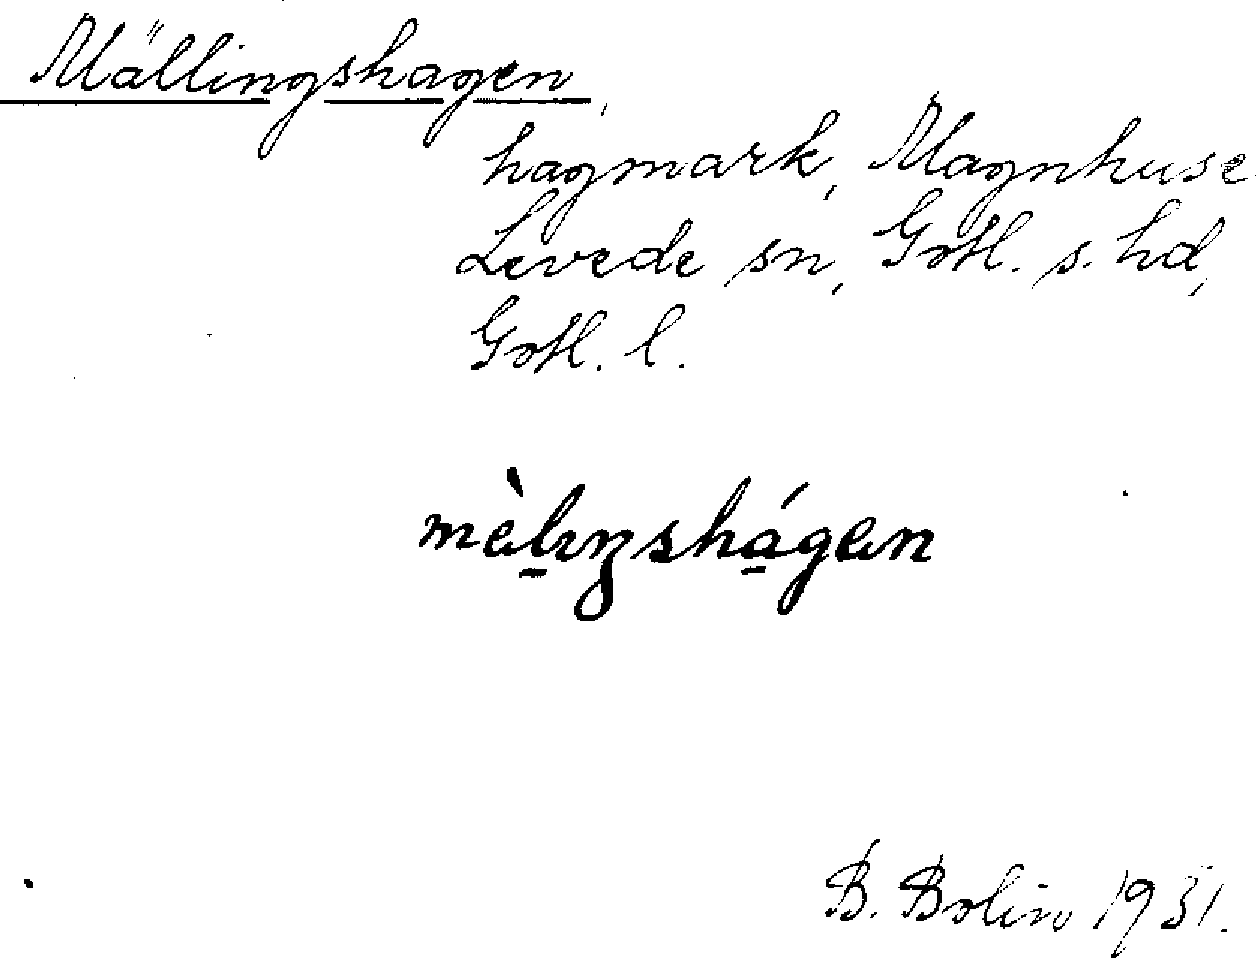 Mällingshagen,
hagmark, Magnhuse
Levede sn, Gotl. s. hd,
Gotl. l.
mèlıŋshágen
B. Bolin 1931.